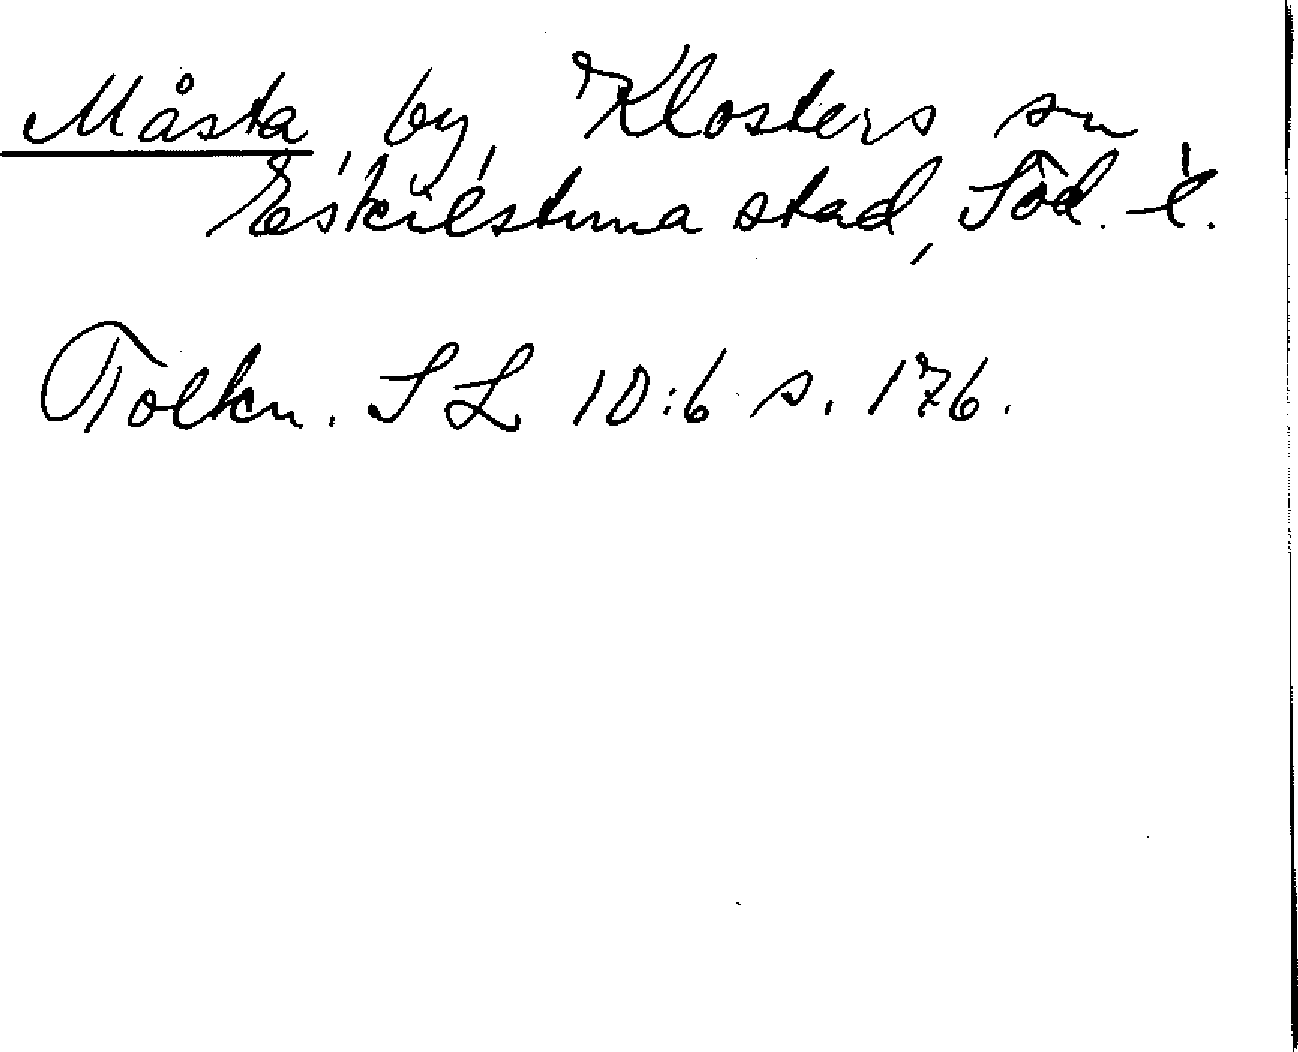 Måsta, by, Klosters sn
Eskilstuna stad, Söd. l.
Tolkn. SL 10:6 s. 176.